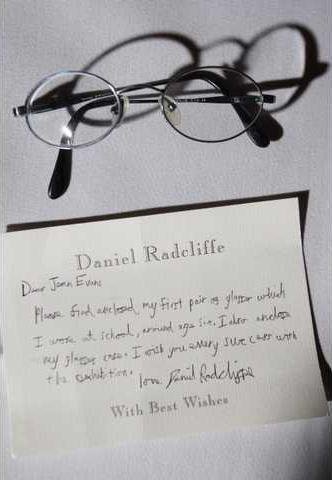 Daniel Radcliffe
Dear Jean Evans
Please find enclosed, my first pair of glasses which
I wore at school, around age six. I also enclose
my glasses case. I wish you every success with
the exhibition.
love Daniel Radcliffe
With Best Wishes